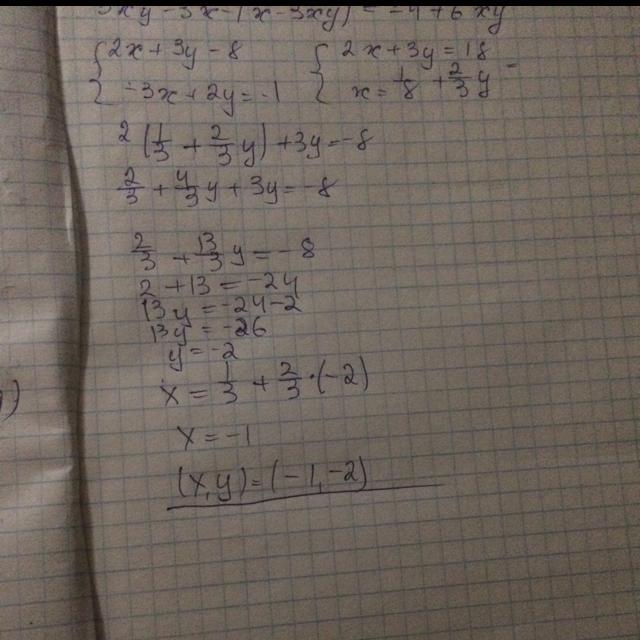 3xy-3x-(x-3xy)=-4+6xy
2x+3y-8 2x+3y=18
-3x+2y=-1 x=1/8+2/3y
2(1/3+2/3y)+3y=-8
2/3+4/3y+3y=-8
2/3+13/3y=-8
2+13=-24
13y=24-2
13y=26
y=-2
x=1/3+2/3·(-2)
x=-1
(x,y)=(-1,-2)